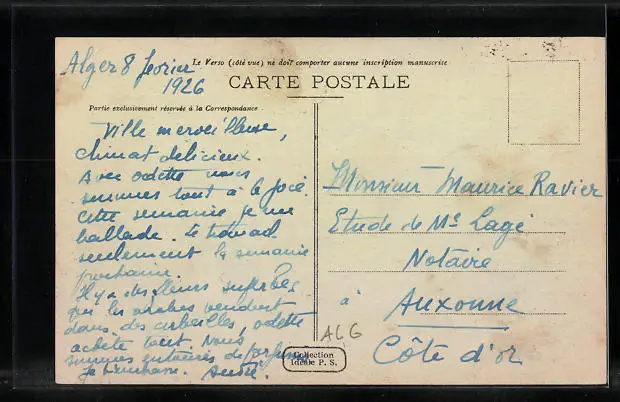 Alger 8 fevrier
1926
Le Verso (côté vue) ne doit comporter aucune inscription manuscrite
CARTE POSTALE
Partie exclusivement réservée à la Correspondance
Ville merveilleuse,
climat délicieux.
Avec odette nous
sommes tout à la joie.
Cette semaine je me
ballade. Le travail
seulement la semaine
prochaine.
Il y a des fleurs superbes
que les arabes vendent
dans des corbeilles, odette
achète tout. Nous
sommes entourés de parfums
Je t'embrasse. André.
Monsieur Maurice Ravier
Etude de Me Lagé
Notaire
à Auxonne
Côte d'or
ALG
Collection
Idéale P. S.